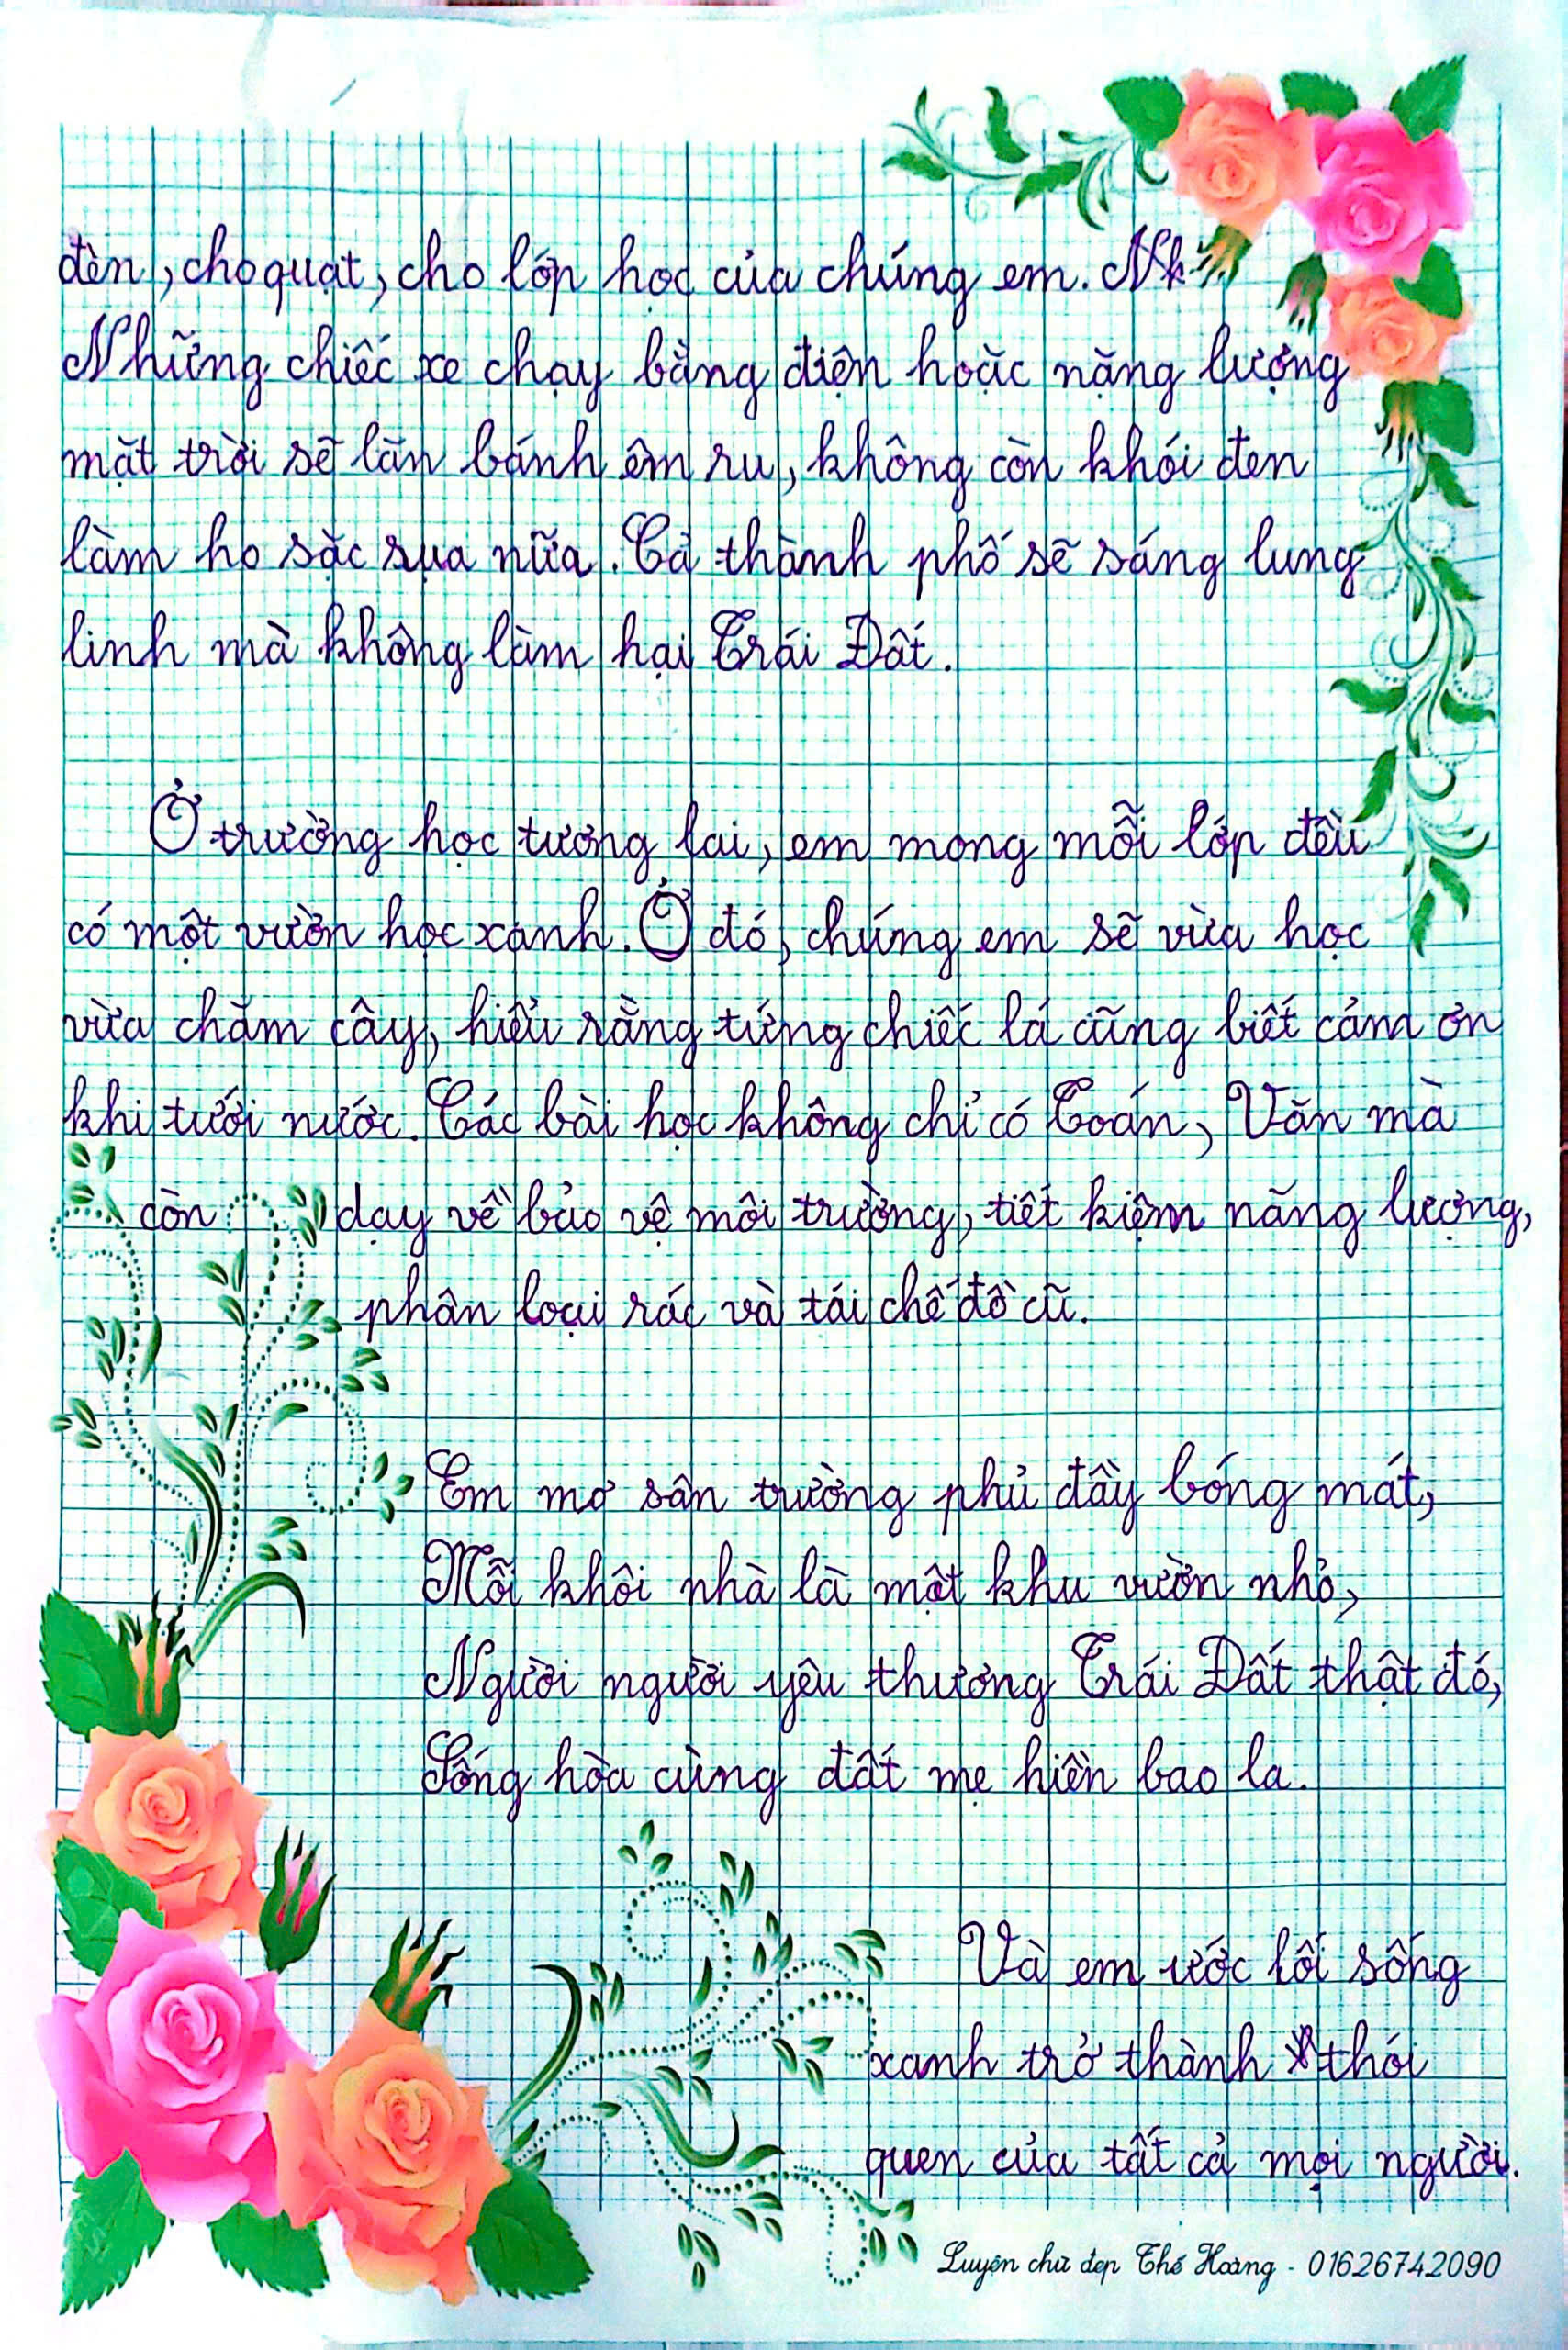 đèn, cho quạt, cho lớp học của chúng em. Nh
Những chiếc xe chạy bằng điện hoặc nặng lượng
mặt trời sẽ lăn bánh êm ru, không còn khói đen
làm ho sặc sụa nữa. Cả thành phố sẽ sáng lung
linh mà không làm hại Trái Đất.
Ở trường học tương lai, em mong mỗi lớp đều
có một vườn học xanh. Ở đó, chúng em sẽ vừa học
vừa chăm cây, hiểu rằng từng chiếc lá cũng biết cảm ơn
khi tưới nước. Các bài học không chỉ có Toán, Văn mà
còn dạy về bảo vệ môi trường, tiết kiệm năng lượng,
phân loại rác và tái chế đồ cũ.
Em mơ sân trường phủ đầy bóng mát,
Mỗi khôi nhà là một khu vườn nhỏ,
Người người yêu thương Trái Đất thật đó,
Sống hòa cùng đất mẹ hiền bao la.
Và em ước lối sống
xanh trở thành thói
quen của tất cả mọi người.
Luyện chữ đẹp Thế Hoàng - 01626742090